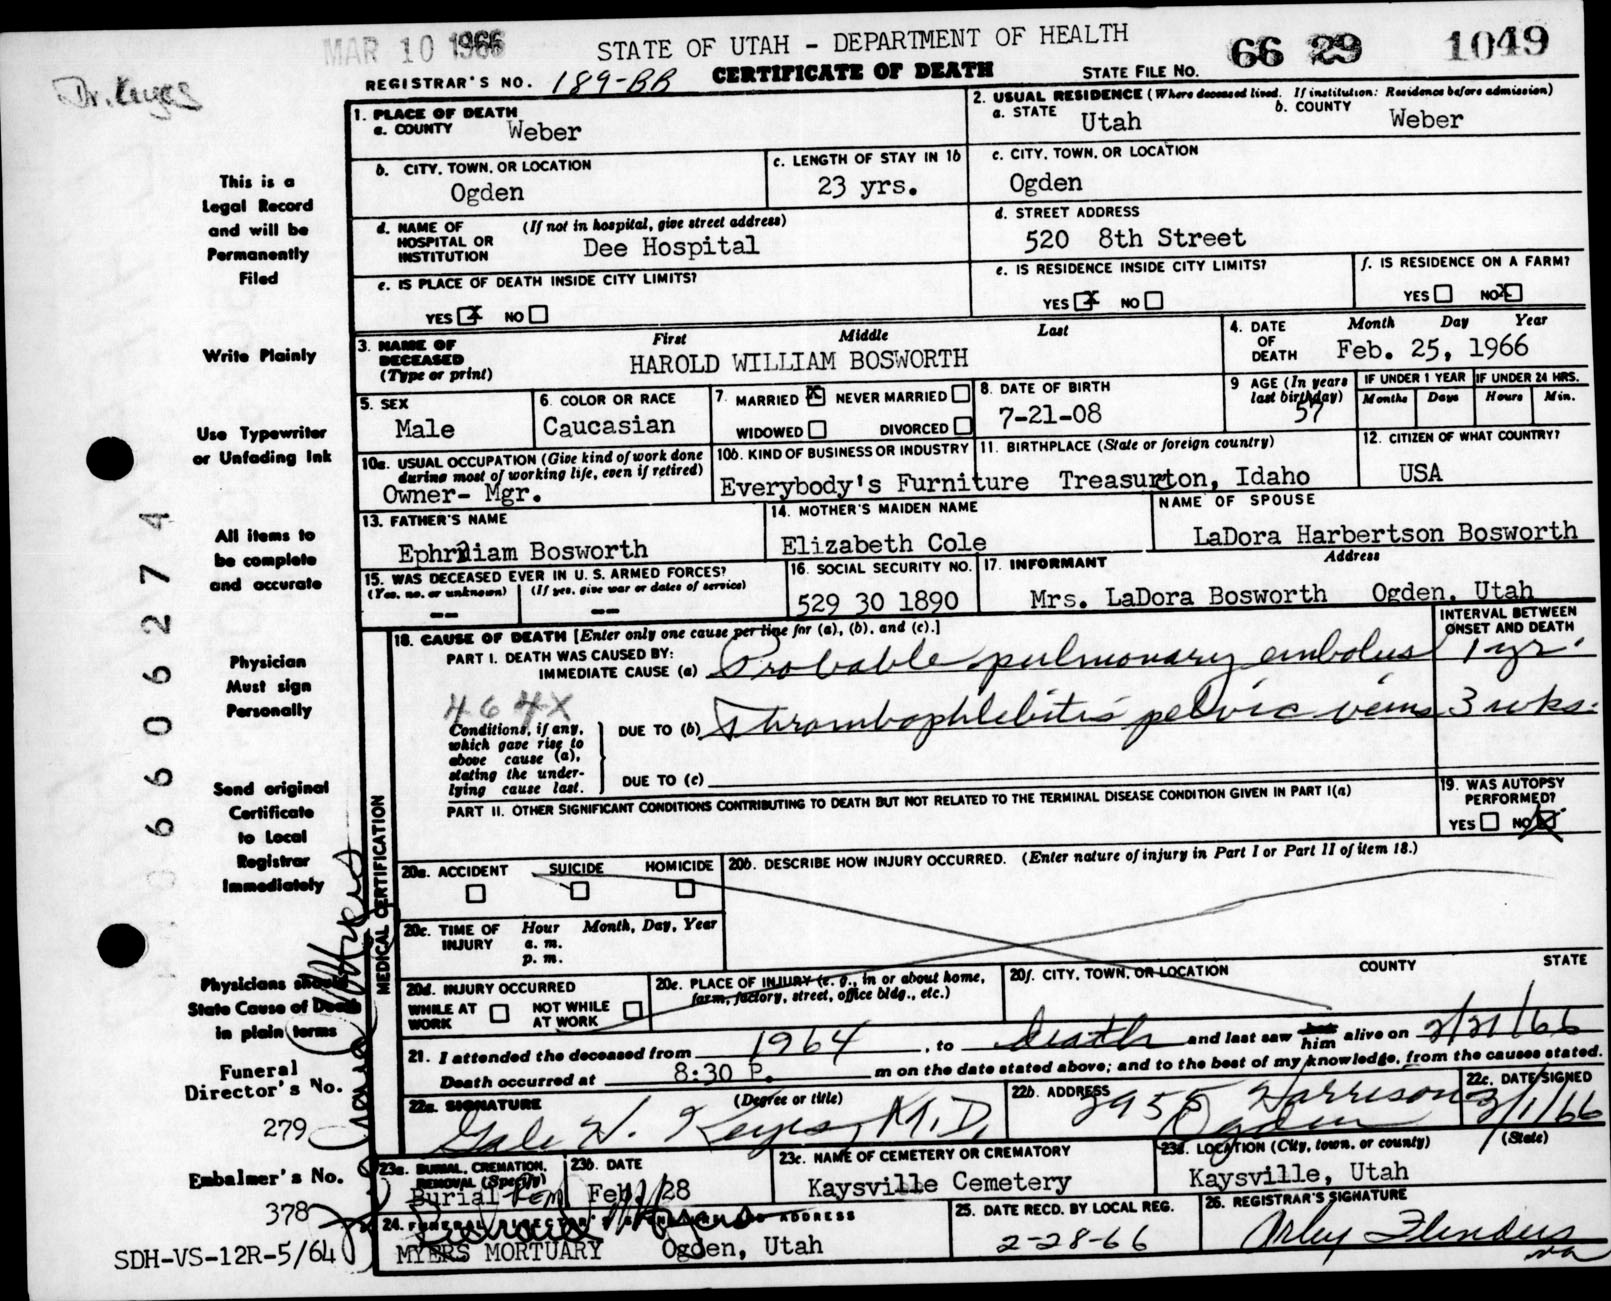 MAR 10 1966
STATE OF UTAH - DEPARTMENT OF HEALTH
66 29 1049
Dr. Keyes
REGISTRAR'S NO. 189-BB CERTIFICATE OF DEATH STATE FILE NO.
1. PLACE OF DEATH
a. COUNTY Weber
2. USUAL RESIDENCE (Where deceased lived. If institution: Residence before admission)
a. STATE Utah b. COUNTY Weber
b. CITY, TOWN, OR LOCATION
Ogden
c. LENGTH OF STAY IN 1b
23 yrs.
c. CITY, TOWN, OR LOCATION
Ogden
d. NAME OF HOSPITAL OR INSTITUTION (If not in hospital, give street address)
Dee Hospital
d. STREET ADDRESS
520 8th Street
e. IS PLACE OF DEATH INSIDE CITY LIMITS?
YES X NO
e. IS RESIDENCE INSIDE CITY LIMITS?
YES X NO
f. IS RESIDENCE ON A FARM?
YES NO X
3. NAME OF DECEASED (Type or print)
First Middle Last
HAROLD WILLIAM BOSWORTH
4. DATE OF DEATH
Month Day Year
Feb. 25, 1966
5. SEX
Male
6. COLOR OR RACE
Caucasian
7. MARRIED X NEVER MARRIED
WIDOWED DIVORCED
8. DATE OF BIRTH
7-21-08
9 AGE (In years last birthday)
57
IF UNDER 1 YEAR
Months Days
IF UNDER 24 HRS.
Hours Min.
10a. USUAL OCCUPATION (Give kind of work done during most of working life, even if retired)
Owner- Mgr.
10b. KIND OF BUSINESS OR INDUSTRY
Everybody's Furniture
11. BIRTHPLACE (State or foreign country)
Treasurton, Idaho
12. CITIZEN OF WHAT COUNTRY?
USA
13. FATHER'S NAME
Ephriliam Bosworth
14. MOTHER'S MAIDEN NAME
Elizabeth Cole
NAME OF SPOUSE
LaDora Harbertson Bosworth
15. WAS DECEASED EVER IN U. S. ARMED FORCES?
(Yes, no, or unknown) (If yes, give war or dates of service)
-- --
16. SOCIAL SECURITY NO.
529 30 1890
17. INFORMANT Address
Mrs. LaDora Bosworth Ogden, Utah
MEDICAL CERTIFICATION
18. CAUSE OF DEATH [Enter only one cause per line for (a), (b), and (c).]
INTERVAL BETWEEN ONSET AND DEATH
PART I. DEATH WAS CAUSED BY:
IMMEDIATE CAUSE (a) Probable pulmonary embolus 1 yr.
464X
Conditions, if any, which gave rise to above cause (a), stating the underlying cause last.
DUE TO (b) Thrombophlebitis pelvic veins 3 wks.
DUE TO (c)
PART II. OTHER SIGNIFICANT CONDITIONS CONTRIBUTING TO DEATH BUT NOT RELATED TO THE TERMINAL DISEASE CONDITION GIVEN IN PART I(a)
19. WAS AUTOPSY PERFORMED?
YES NO X
20a. ACCIDENT SUICIDE HOMICIDE
20b. DESCRIBE HOW INJURY OCCURRED. (Enter nature of injury in Part I or Part II of item 18.)
20c. TIME OF INJURY Hour Month, Day, Year
a. m.
p. m.
20d. INJURY OCCURRED
WHILE AT WORK NOT WHILE AT WORK
20e. PLACE OF INJURY (e. g., in or about home, farm, factory, street, office bldg., etc.)
20f. CITY, TOWN, OR LOCATION COUNTY STATE
21. I attended the deceased from 1964, to death and last saw her him alive on 2/21/66
Death occurred at 8:30 P. m on the date stated above; and to the best of my knowledge, from the causes stated.
22a. SIGNATURE (Degree or title)
Gale W. Keyes, M.D.
22b. ADDRESS
3955 Harrison
Ogden
22c. DATE SIGNED
3/1/66
23a. BURIAL, CREMATION, REMOVAL (Specify)
Burial Rem
23b. DATE
Feb. 28
23c. NAME OF CEMETERY OR CREMATORY
Kaysville Cemetery
23d. LOCATION (City, town, or county) (State)
Kaysville, Utah
24. FUNERAL DIRECTOR'S SIGNATURE AND ADDRESS
MYERS MORTUARY Ogden, Utah
25. DATE RECD. BY LOCAL REG.
2-28-66
26. REGISTRAR'S SIGNATURE
Arley Flinders
This is a
Legal Record
and will be
Permanently
Filed
Write Plainly
Use Typewriter
or Unfading Ink
All items to
be complete
and accurate
Physician
Must sign
Personally
Send original
Certificate
to Local
Registrar
Immediately
Physicians should
State Cause of Death
in plain terms
Funeral
Director's No.
279
Embalmer's No.
378
SDH-VS-12R-5/64